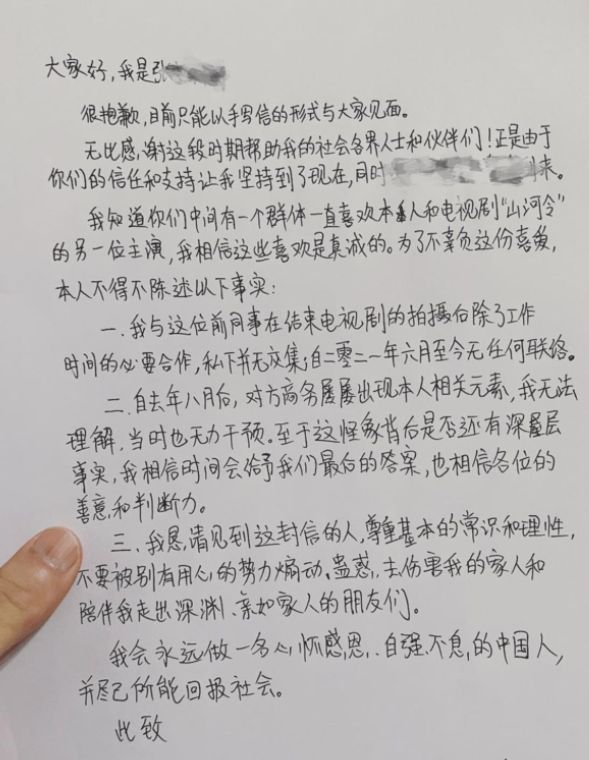 大家好，我是张
很抱歉，目前只能以手写信的形式与大家见面。
无比感谢这段时期帮助我的社会各界人士和伙伴们！正是由于
你们的信任和支持让我坚持到了现在，同时 来。
我知道你们中间有一个群体一直喜欢本人和电视剧“山河令”
的另一位主演，我相信这些喜欢是真诚的。为了不辜负这份喜爱，
本人不得不陈述以下事实：
一、我与这位前同事在结束电视剧的拍摄后除了工作
时间的必要合作，私下并无交集；自二零二一年六月至今无任何联络。
二、自去年八月后，对方商务屡屡出现本人相关元素，我无法
理解、当时也无力干预。至于这怪象背后是否还有深层
事实，我相信时间会给予我们最后的答案，也相信各位的
善意和判断力。
三、我恳请见到这封信的人，尊重基本的常识和理性，
不要被别有用心的势力煽动、蛊惑，去伤害我的家人和
陪伴我走出深渊、亲如家人的朋友们。
我会永远做一名心怀感恩、自强不息的中国人，
并尽己所能回报社会。
此致